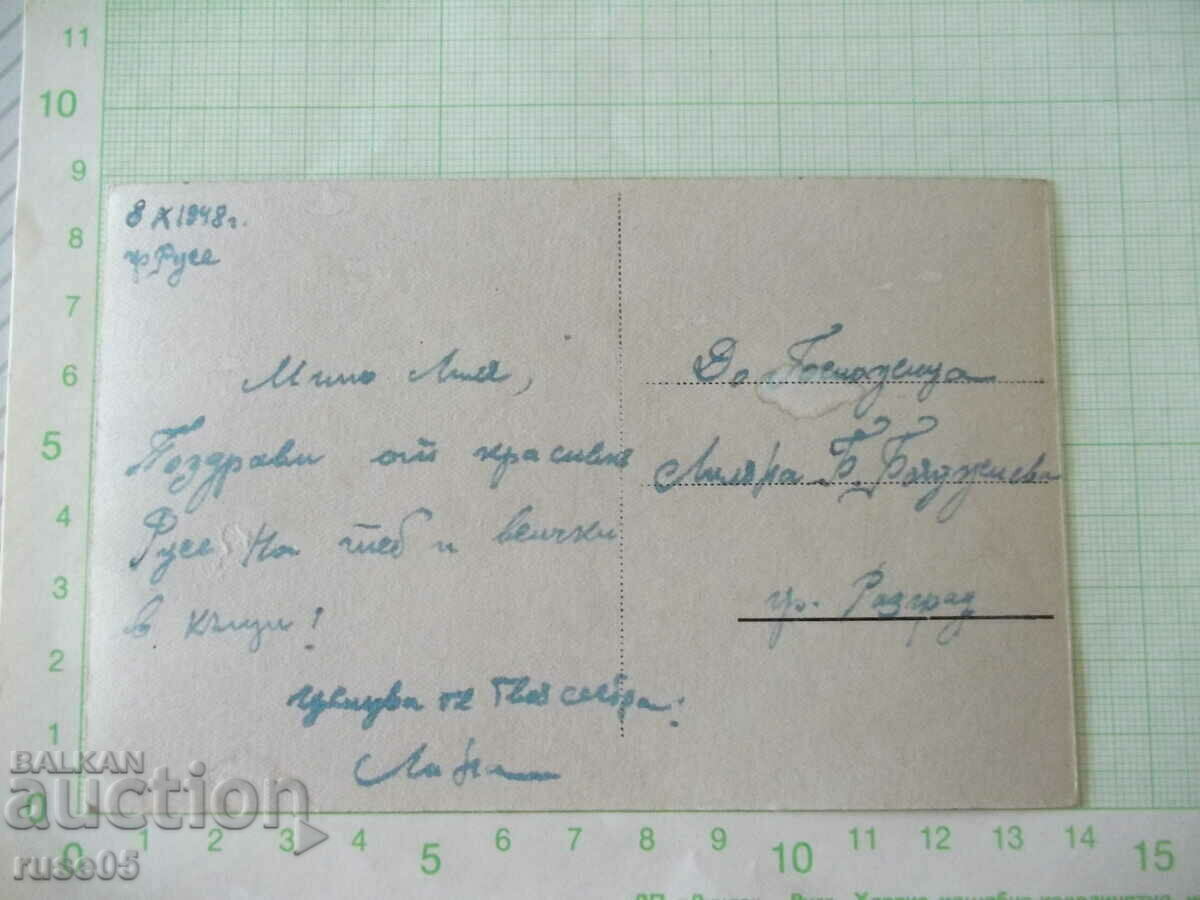 8 X 1948 г.
гр Русе
Мило Лиля,
Поздрави от красивия
Русе на теб и всички
в къщи!
целува те Твоя сестра:
До Госпожица
Б. Бояджиева
гр. Разград
11
10
9
8
7
6
5
4
3
2
1
0
0 1 2 3 4 5 6 7 8 9 10 11 12 13 14 15
BALKAN
auction
ruse05